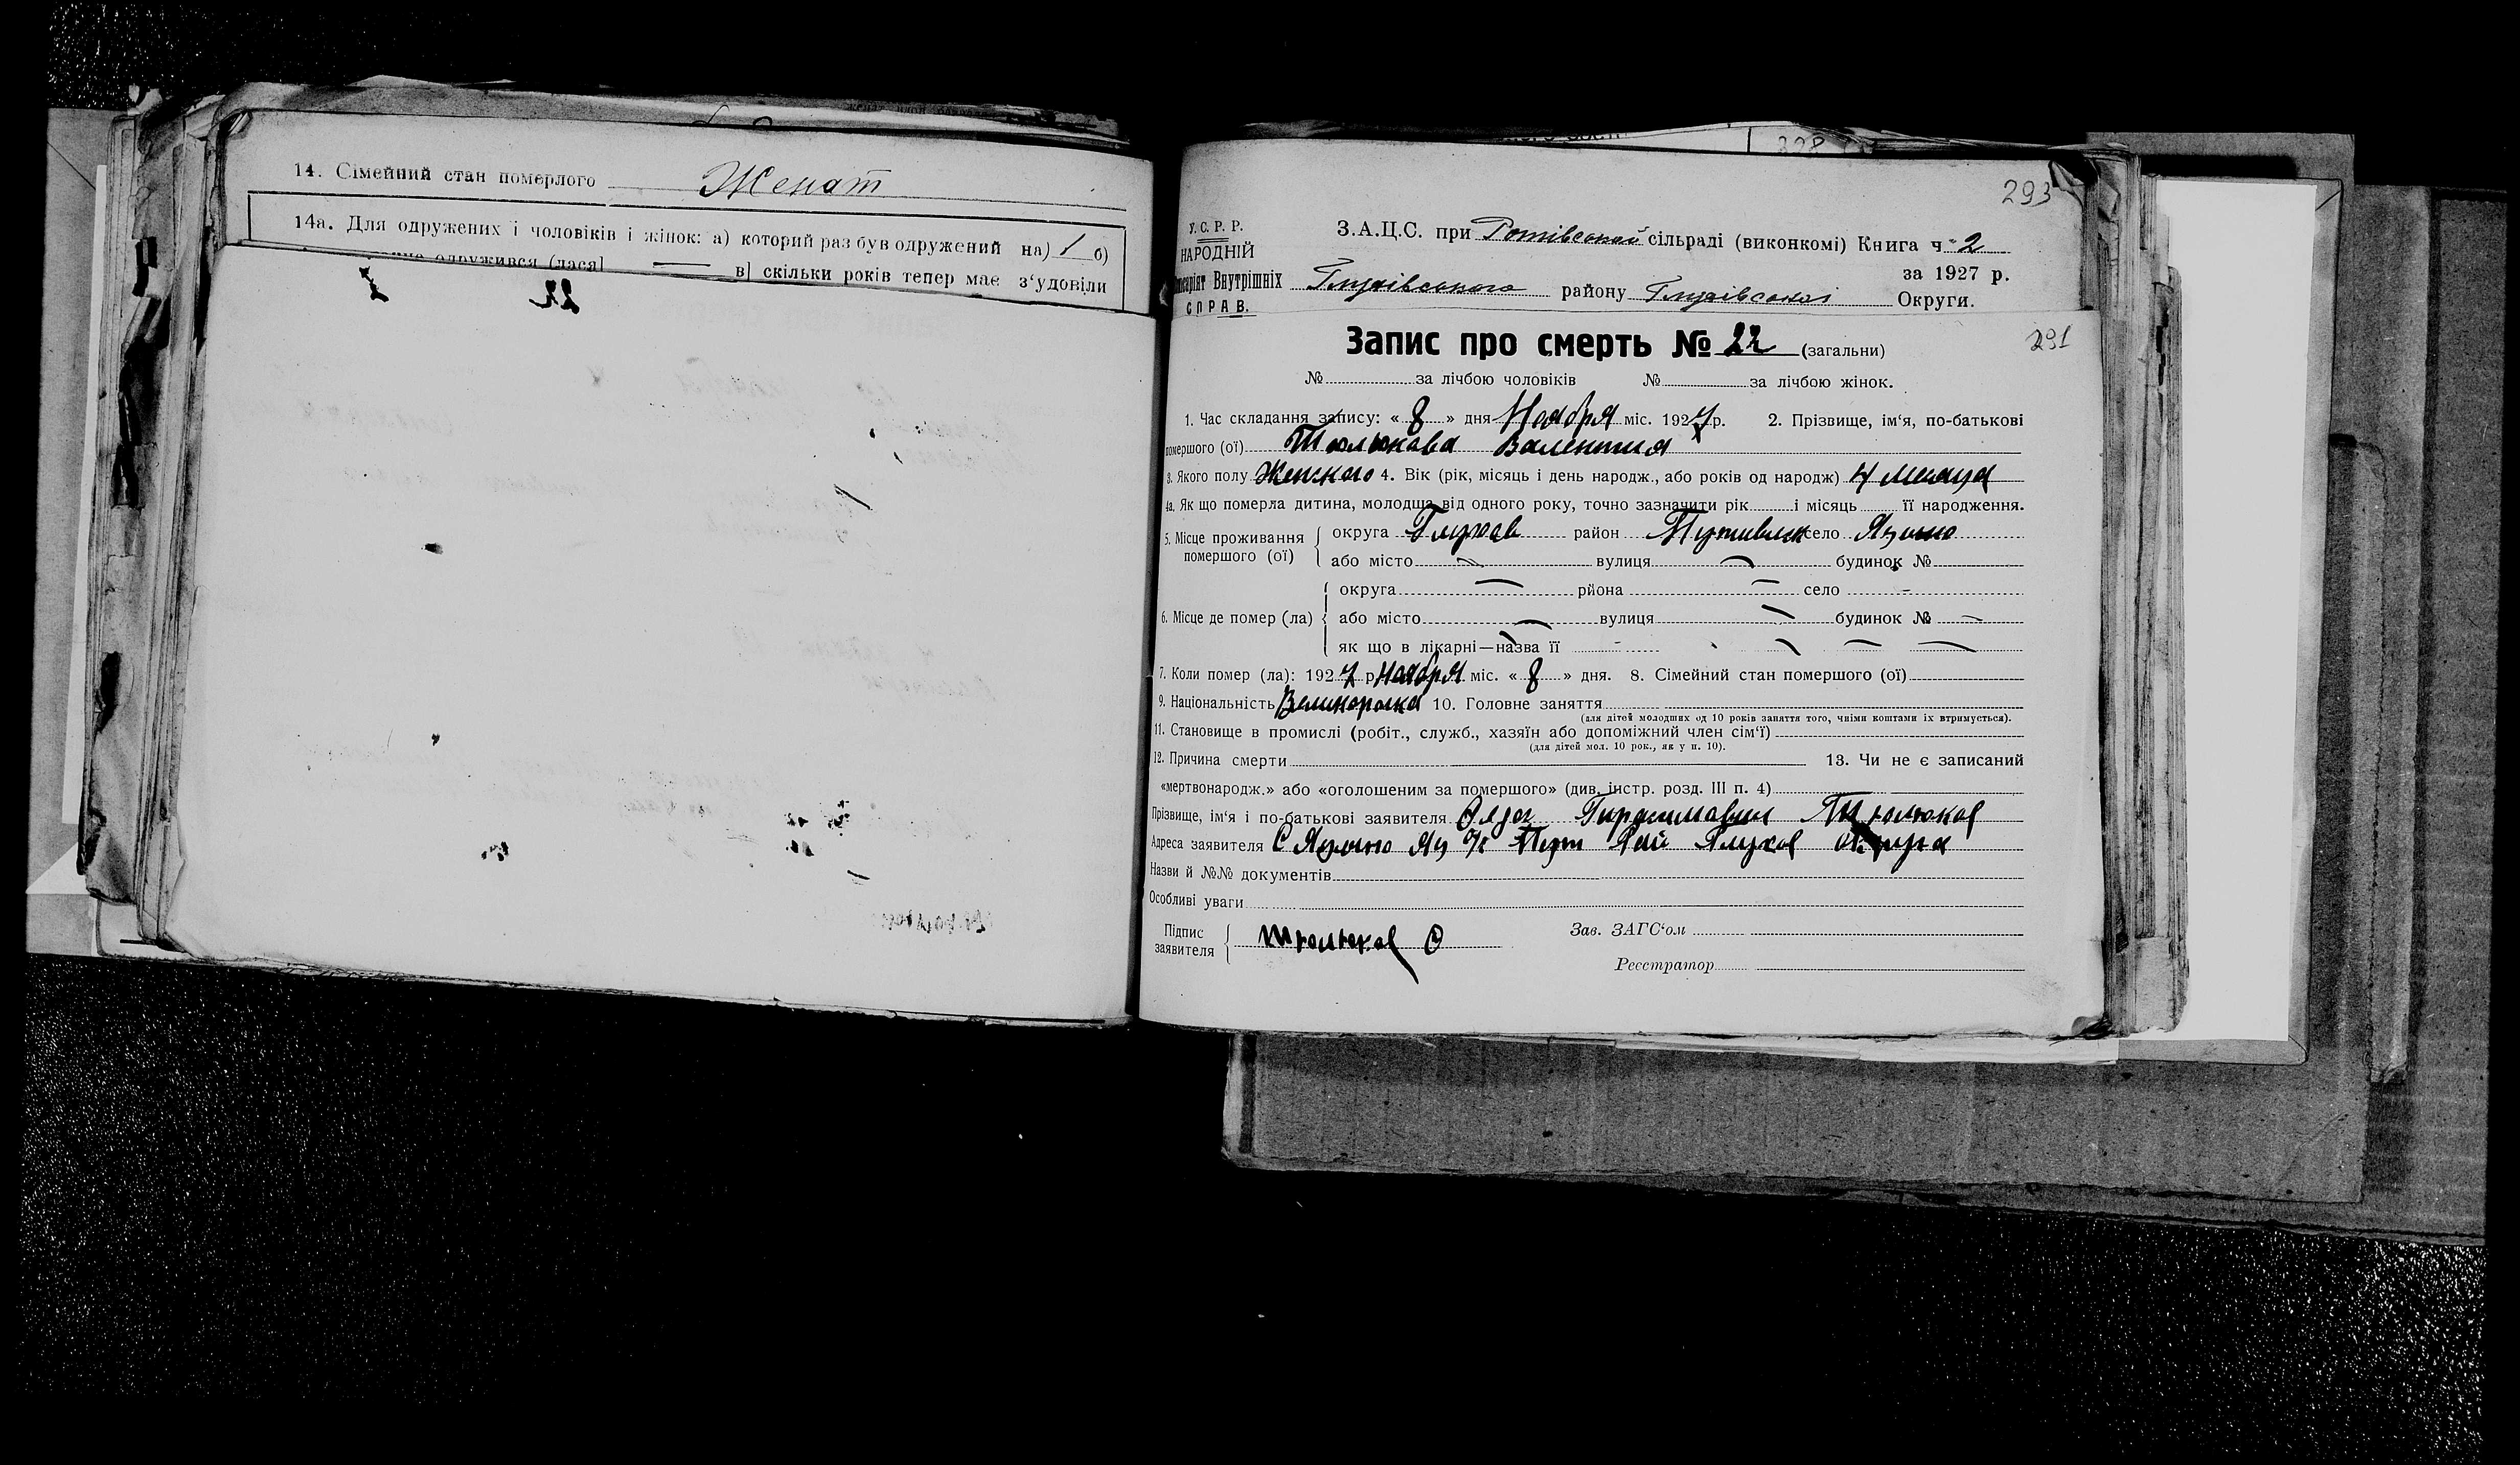 14. Сімейний стан померлого Женат
14а. Для одружених і чоловіків і жінок: а) которий раз був одружений на) 1 б)
одружився (лася] — в] скільки років тепер має з‘удовіли
328
293
У. С. Р. Р.
НАРОДНІЙ
Внутрішніх
СПРАВ.
З.А.Ц.С. при сільраді (виконкомі) Книга ч. 2
за 1927 р.
Глухівського району Глухівської Округи.
291
Запис про смерть № 22 (загальни)
№ за лічбою чоловіків № за лічбою жінок.
1. Час складання запису: « 8 » дня Ноября міс. 1927 р. 2. Прізвище, ім‘я, по-батькові
помершого (ої) Тюлюкова Валентия
3. Якого полу Женского 4. Вік (рік, місяць і день народж., або років од народж) 4 месяца
4а. Як що померла дитина, молодша від одного року, точно зазначити рік і місяць її народження.
5. Місце проживання помершого (ої) округа Глухов район Путивльск село Яцыно
або місто — вулиця — будинок №
6. Місце де помер (ла) округа — рйона — село -
або місто — вулиця — будинок № —
як що в лікарні—назва її
7. Коли помер (ла): 1927 р Ноября міс. « 8 » дня. 8. Сімейний стан помершого (ої)
9. Національність Великороска 10. Головне заняття
(для дітей молодших од 10 років заняття того, чиїми коштами їх втримується).
11. Становище в промислі (робіт., служб., хазяїн або допоміжний член сім‘ї)
(для дітей мол. 10 рок., як у п. 10).
12. Причина смерти 13. Чи не є записаний
«мертвонародж.» або «оголошеним за помершого» (див. інстр. розд. III п. 4)
Прізвище, ім‘я і по-батькові заявителя Тюлюков
Адреса заявителя С Яцыно Яц С/с Пут Рай Глухов Округа
Назви й №№ документів
Особливі уваги
Підпис заявителя Тюлюков Ф
Зав. ЗАГС‘ом
Реєстратор